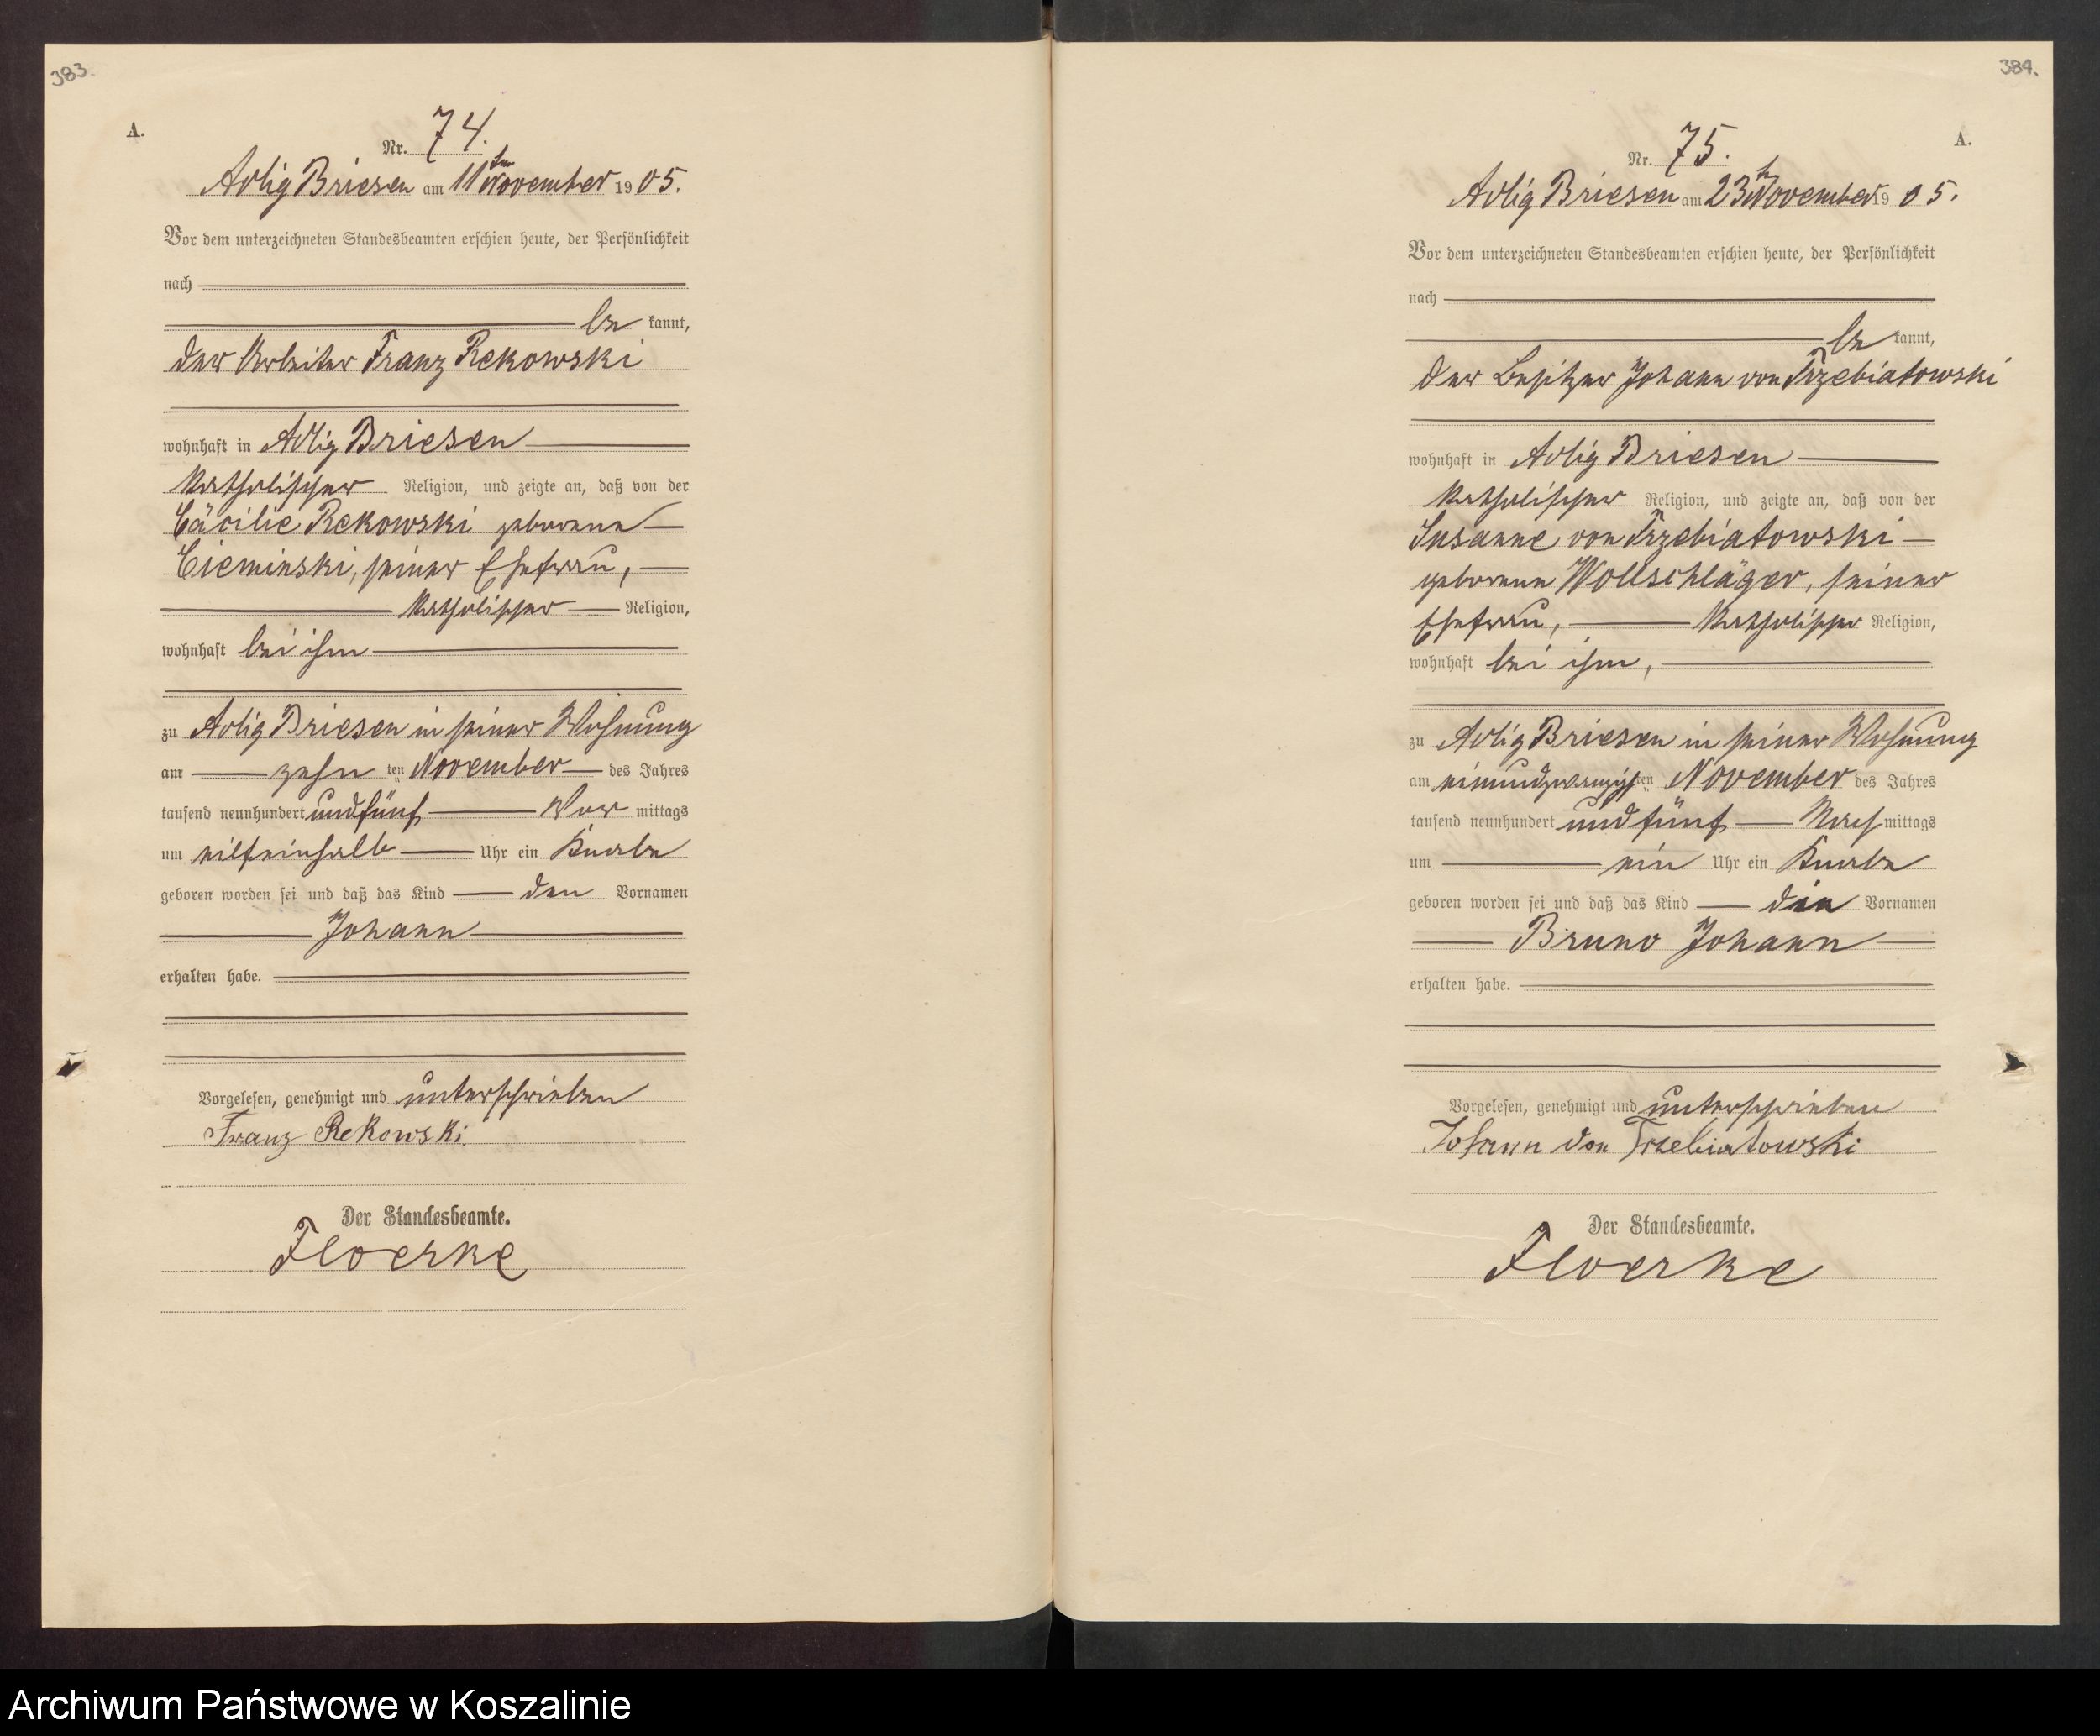 383.
A.
Nr. 74.
Adlig Briesen am 11ten November 1905.
Vor dem unterzeichneten Standesbeamten erschien heute, der Persönlichkeit
nach
be kannt,
der Arbeiter Franz Rekowski
wohnhaft in Adlig Briesen
katholischer Religion, und zeigte an, daß von der
Cäcilie Rekowski geborene
Cieminski, seiner Ehefrau,
katholischer Religion,
wohnhaft bei ihm
zu Adlig Briesen in seiner Wohnung
am zehn ten November des Jahres
tausend neunhundert und fünf Vor mittags
um eilfeinhalb Uhr ein Knabe
geboren worden sei und daß das Kind den Vornamen
Johann
erhalten habe.
Vorgelesen, genehmigt und unterschrieben
Franz Rekowski
Der Standesbeamte.
Floerke
384.
A.
Nr. 75.
Adlig Briesen am 23ten November 1905.
Vor dem unterzeichneten Standesbeamten erschien heute, der Persönlichkeit
nach
be kannt,
der Besitzer Johann von Trzebiatowski
wohnhaft in Adlig Briesen
katholischer Religion, und zeigte an, daß von der
Susanne von Trzebiatowski
geborene Wollschläger, seiner
Ehefrau, katholischer Religion,
wohnhaft bei ihm,
zu Adlig Briesen in seiner Wohnung
am einundzwanzigsten November des Jahres
tausend neunhundert und fünf Nach mittags
um ein Uhr ein Knabe
geboren worden sei und daß das Kind die Vornamen
Bruno Johann
erhalten habe.
Vorgelesen, genehmigt und unterschrieben
Johann von Trzebiatowski
Der Standesbeamte.
Floerke
Archiwum Państwowe w Koszalinie